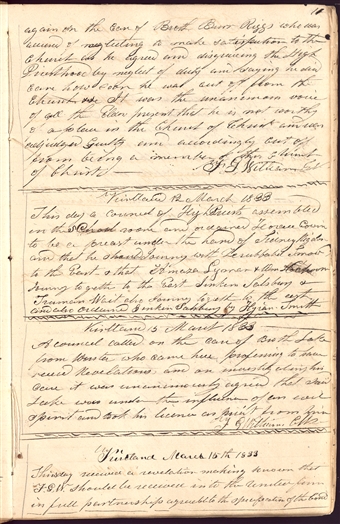 16
again on the case of Broth Burr Riggs who was
accused of neglecting to make satisfaction to the
Church as he agreed and disgracing the High
Priesthood by neglect of duty and saying he did
care how soon he was cut off from the
Church It was the unanimous voice
of all the Elders present that he is not worthy
of a place in the Church of Christ and was
adjudged guilty and accordingly cut off
from being a member of this Church
of Christ
F G Williams
Kirtland 12 March 1833
This day a council of High Priests assembled
in the School room and ordained Horace Cowin
to be a priest under the hand of Sidney Rigdon
and that he should Journey with
to the East & that Amasa Lyman & Wm
Journey to geth to the East Jenkin Salsbury &
Truman Wait also Journey to geth to the east
and also ordained Jenkin Salsbury by Hyram Smith
Kirtland 15 March 1833
A council called on the case of Broth Lake
from Wooster who came here professing to have
received Revelations and on investigating his
case it was unanimously agreed that said
Lake was under the influence of an evil
spirit and took his licence as priest from him
F G Williams
Kirtland March 15th 1833
This day received a revelation making known that
F. G. W. should be received into the United firm
in full partnership agreeable to the specification of the bond